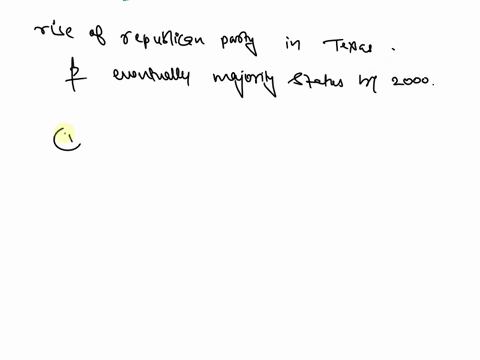 rise of republican party in Texas.
& eventually majority status by 2000.
(i